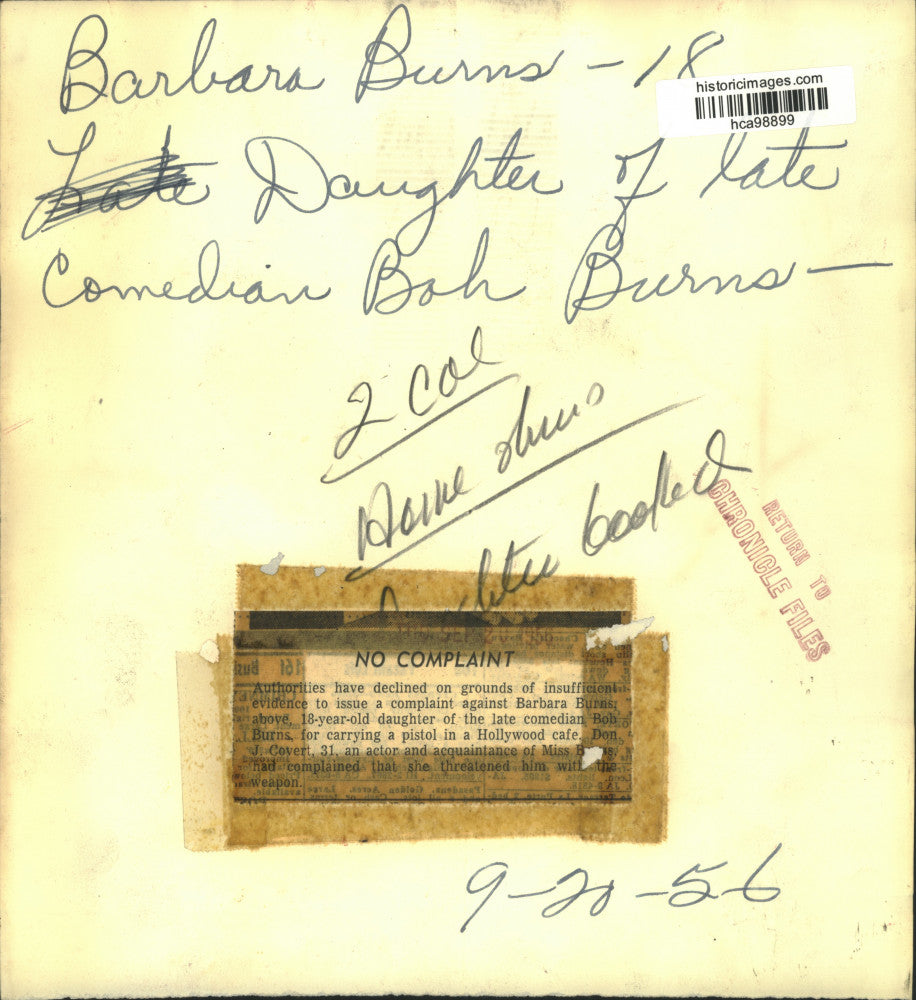 Barbara Burns - 18
historicimages.com
hca98899
Late Daughter of late
Comedian Bob Burns —
2 col
Home
booked
RETURN TO
CHRONICLE FILES
NO COMPLAINT
Authorities have declined on grounds of insufficient
evidence to issue a complaint against Barbara Burns,
above, 18-year-old daughter of the late comedian Bob
Burns, for carrying a pistol in a Hollywood cafe. Don
J. Covert, 31, an actor and acquaintance of Miss Burns,
had complained that she threatened him with the
weapon.
9-20-56